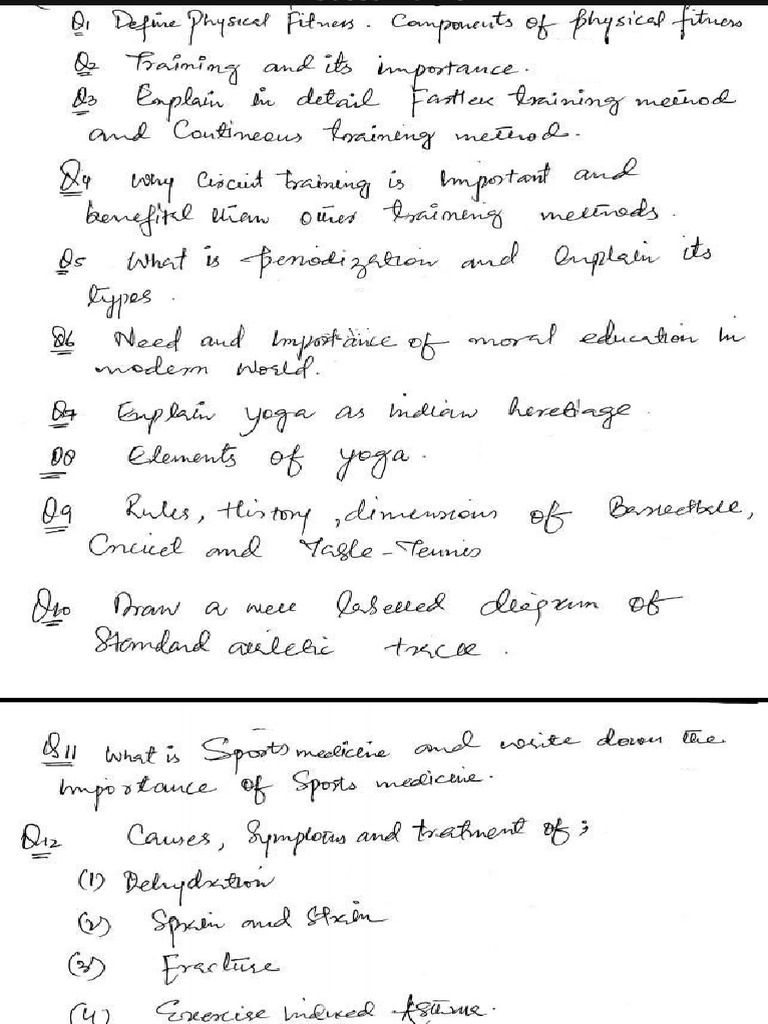 Q1 Define Physical Fitness. Components of physical fitness
Q2 Training and its importance.
Q3 Explain in detail Fastlek training method
and Contineous training method.
Q4 Why Circuit training is important and
benefital than other training methods.
Q5 What is periodization and explain its
types.
Q6 Need and Importance of moral education in
modern World.
Q7 Explain yoga as indian heretiage.
Q8 Elements of yoga.
Q9 Rules, History, dimensions of Basketball,
Cricket and Table-Tennis
Q10 Draw a well labelled diagram of
Standard athletic track.
Q11 What is Sports medicine and write down the
importance of Sports medicine.
Q12 Causes, Symptoms and treatment of;
(1) Dehydration
(2) Sprain and Strain
(3) Fracture
(4) Exercise induced Asthma.